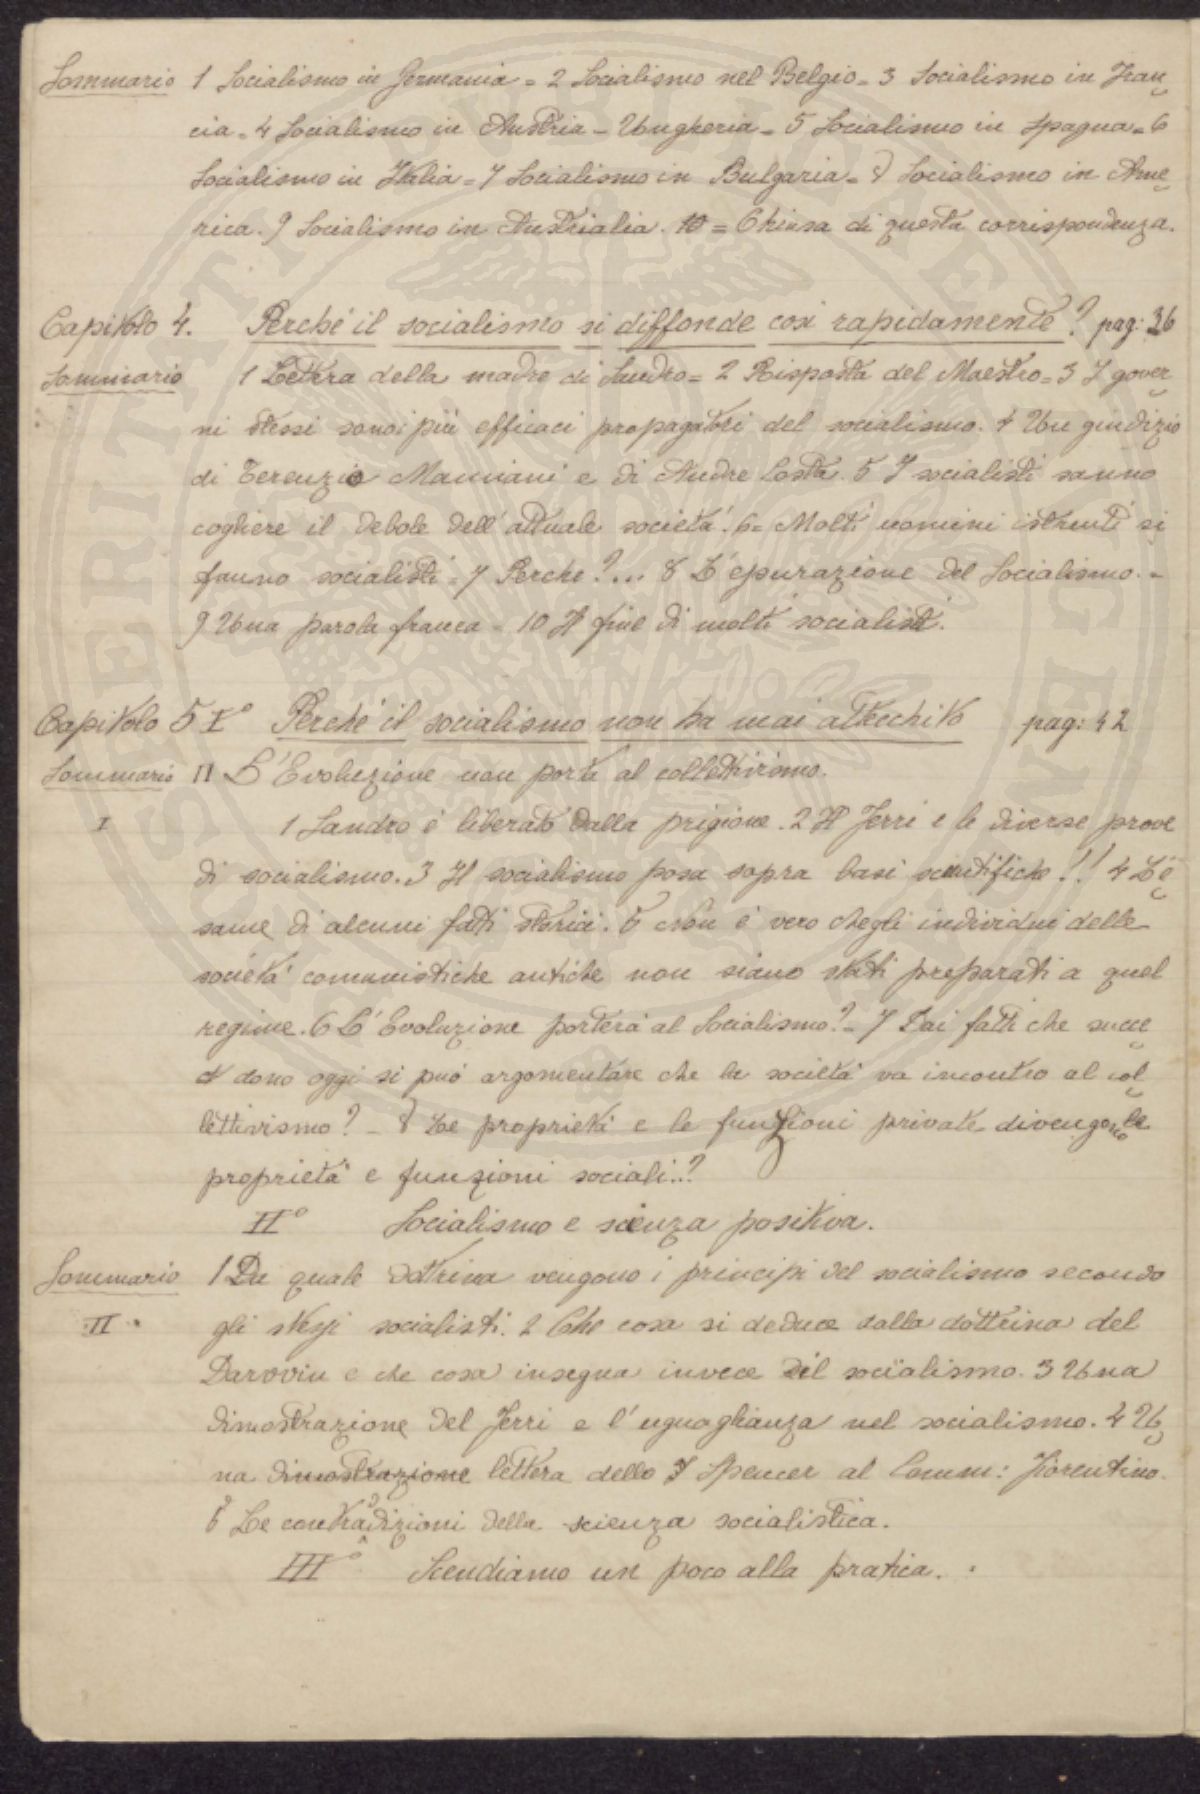 Sommario 1 Socialismo in Germania = 2 Socialismo nel Belgio = 3 Socialismo in Fran
cia = 4 Socialismo in Austria - Ungheria = 5 Socialismo in Spagna = 6
Socialismo in Italia = 7 Socialismo in Bulgaria = 8 Socialismo in Ame
rica. 9 Socialismo in Austrialia. 10 = Chiusa di questa corrispondenza.
Capitolo 4. Perché il socialismo si diffonde così rapidamente? pag: 36
Sommario 1 Lettera della madre di Sandro = 2 Risposta del Maestro = 3 I gover
ni stessi sono i più efficaci propagatori del socialismo. 4 Un giudizio
di Terenzio Mamiani e di Andre Costa. 5 I socialisti sanno
cogliere il debole dell'attuale società. 6 = Molti uomini istruiti si
fanno socialisti = 7 Perche?... 8 L'epurazione del Socialismo. =
9 Una parola franca = 10 Il fine di molti socialisti.
Capitolo 5 I° Perché il socialismo non ha mai attecchito pag: 42
Sommario II L'Evoluzione non porta al collettivismo.
I 1 Sandro é liberato dalla prigione. 2 Il Ferri e le diverse prove
di socialismo. 3 Il socialismo posa sopra basi scientifiche!! 4 L'e
same di alcuni fatti storici. 5 Non é vero che gli individui delle
società comunistiche antiche non siano stati preparati a quel
regime. 6 L'Evoluzione porterà al Socialismo? = 7 Dai fatti che succe
dono oggi si può argomentare che la società va incontro al col
lettivismo? - 8 Le proprietà e le funzioni private divengono le
proprietà e funzioni sociali..?
II° Socialismo e scienza positiva.
Sommario 1 Da quale dottrina vengono i principi del socialismo secondo
II gli stessi socialisti. 2 Che cosa si deduce dalla dottrina del
Darwin e che cosa insegna invece il socialismo. 3 Una
dimostrazione del Ferri e l'uguaglianza nel socialismo. 4 U
na dimostrazione lettera dello Spencer al Comm: Fiorentino.
5 Le contradizioni della scienza socialistica.
III° Scendiamo un poco alla pratica.